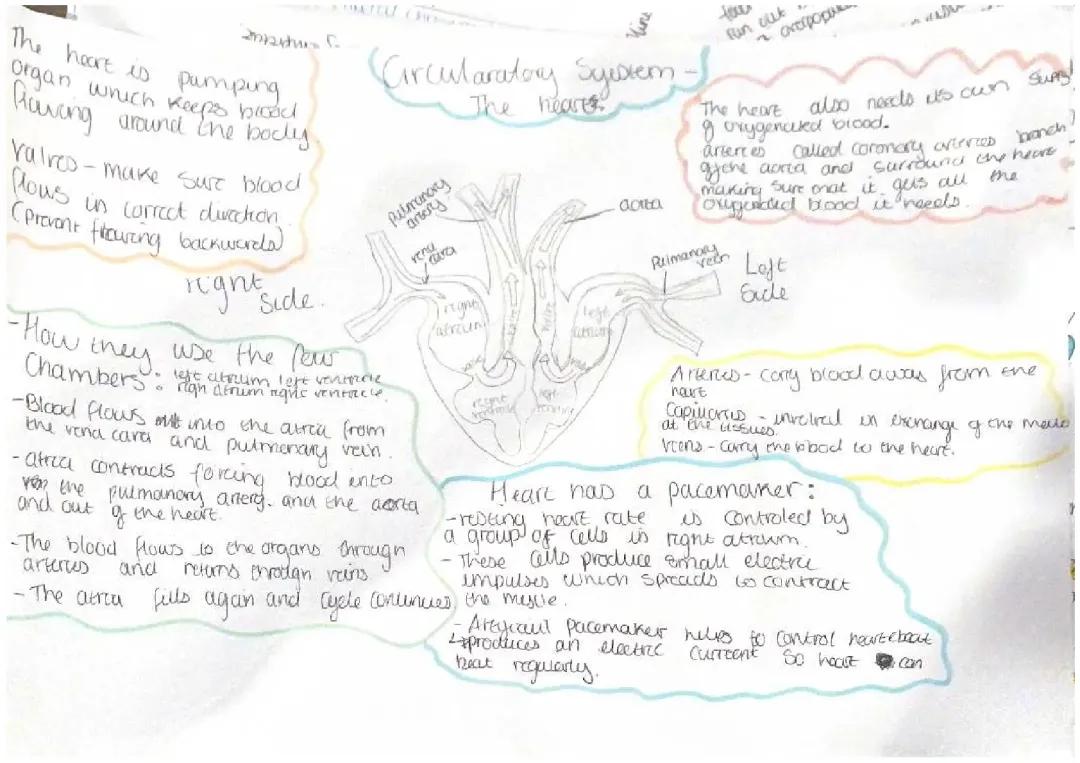 Circularatory System -
The heart
The heart is pumping
organ which keeps blood
flowing around the body
valves - make sure blood
flows in correct direction.
(prevent flowing backwards)
The heart also needs its own supply
of oxygenated blood.
arteries called coronary arteries branch
off the aorta and surround the heart
making sure that it gets all the
oxygenated blood it needs.
right
Side.
Pulmonary
artery
vena
cava
aorta
Pulmonary
vein
Left
Side
right
atrium
left
atrium
right
ventricle
left
- How they use the four
Chambers: left atrium left ventricle
righ atrium right ventricle.
- Blood flows into the atria from
the vena cava and pulmonary vein.
- atria contracts forcing blood into
the pulmonary artery. and the aorta
and out of the heart.
- The blood flows to the organs through
arteries and returns through veins
- The atria fills again and cycle continues
Arteries - carry blood away from the
heart
Capillaries - involved in exchange of the
at the tissues.
Veins - carry the blood to the heart.
Heart has a pacemaker:
- resting heart rate is controled by
a group of cells in right atrium.
- These cells produce small electric
impulses which spreads to contract
the
- Artificial pacemaker helps to control heartbeat
↳ produces an electric current so heart can
beat regularly.